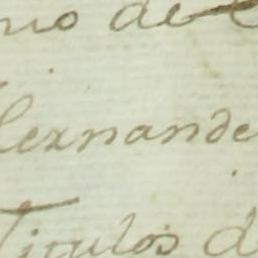 no de
Hernande
Titulos d